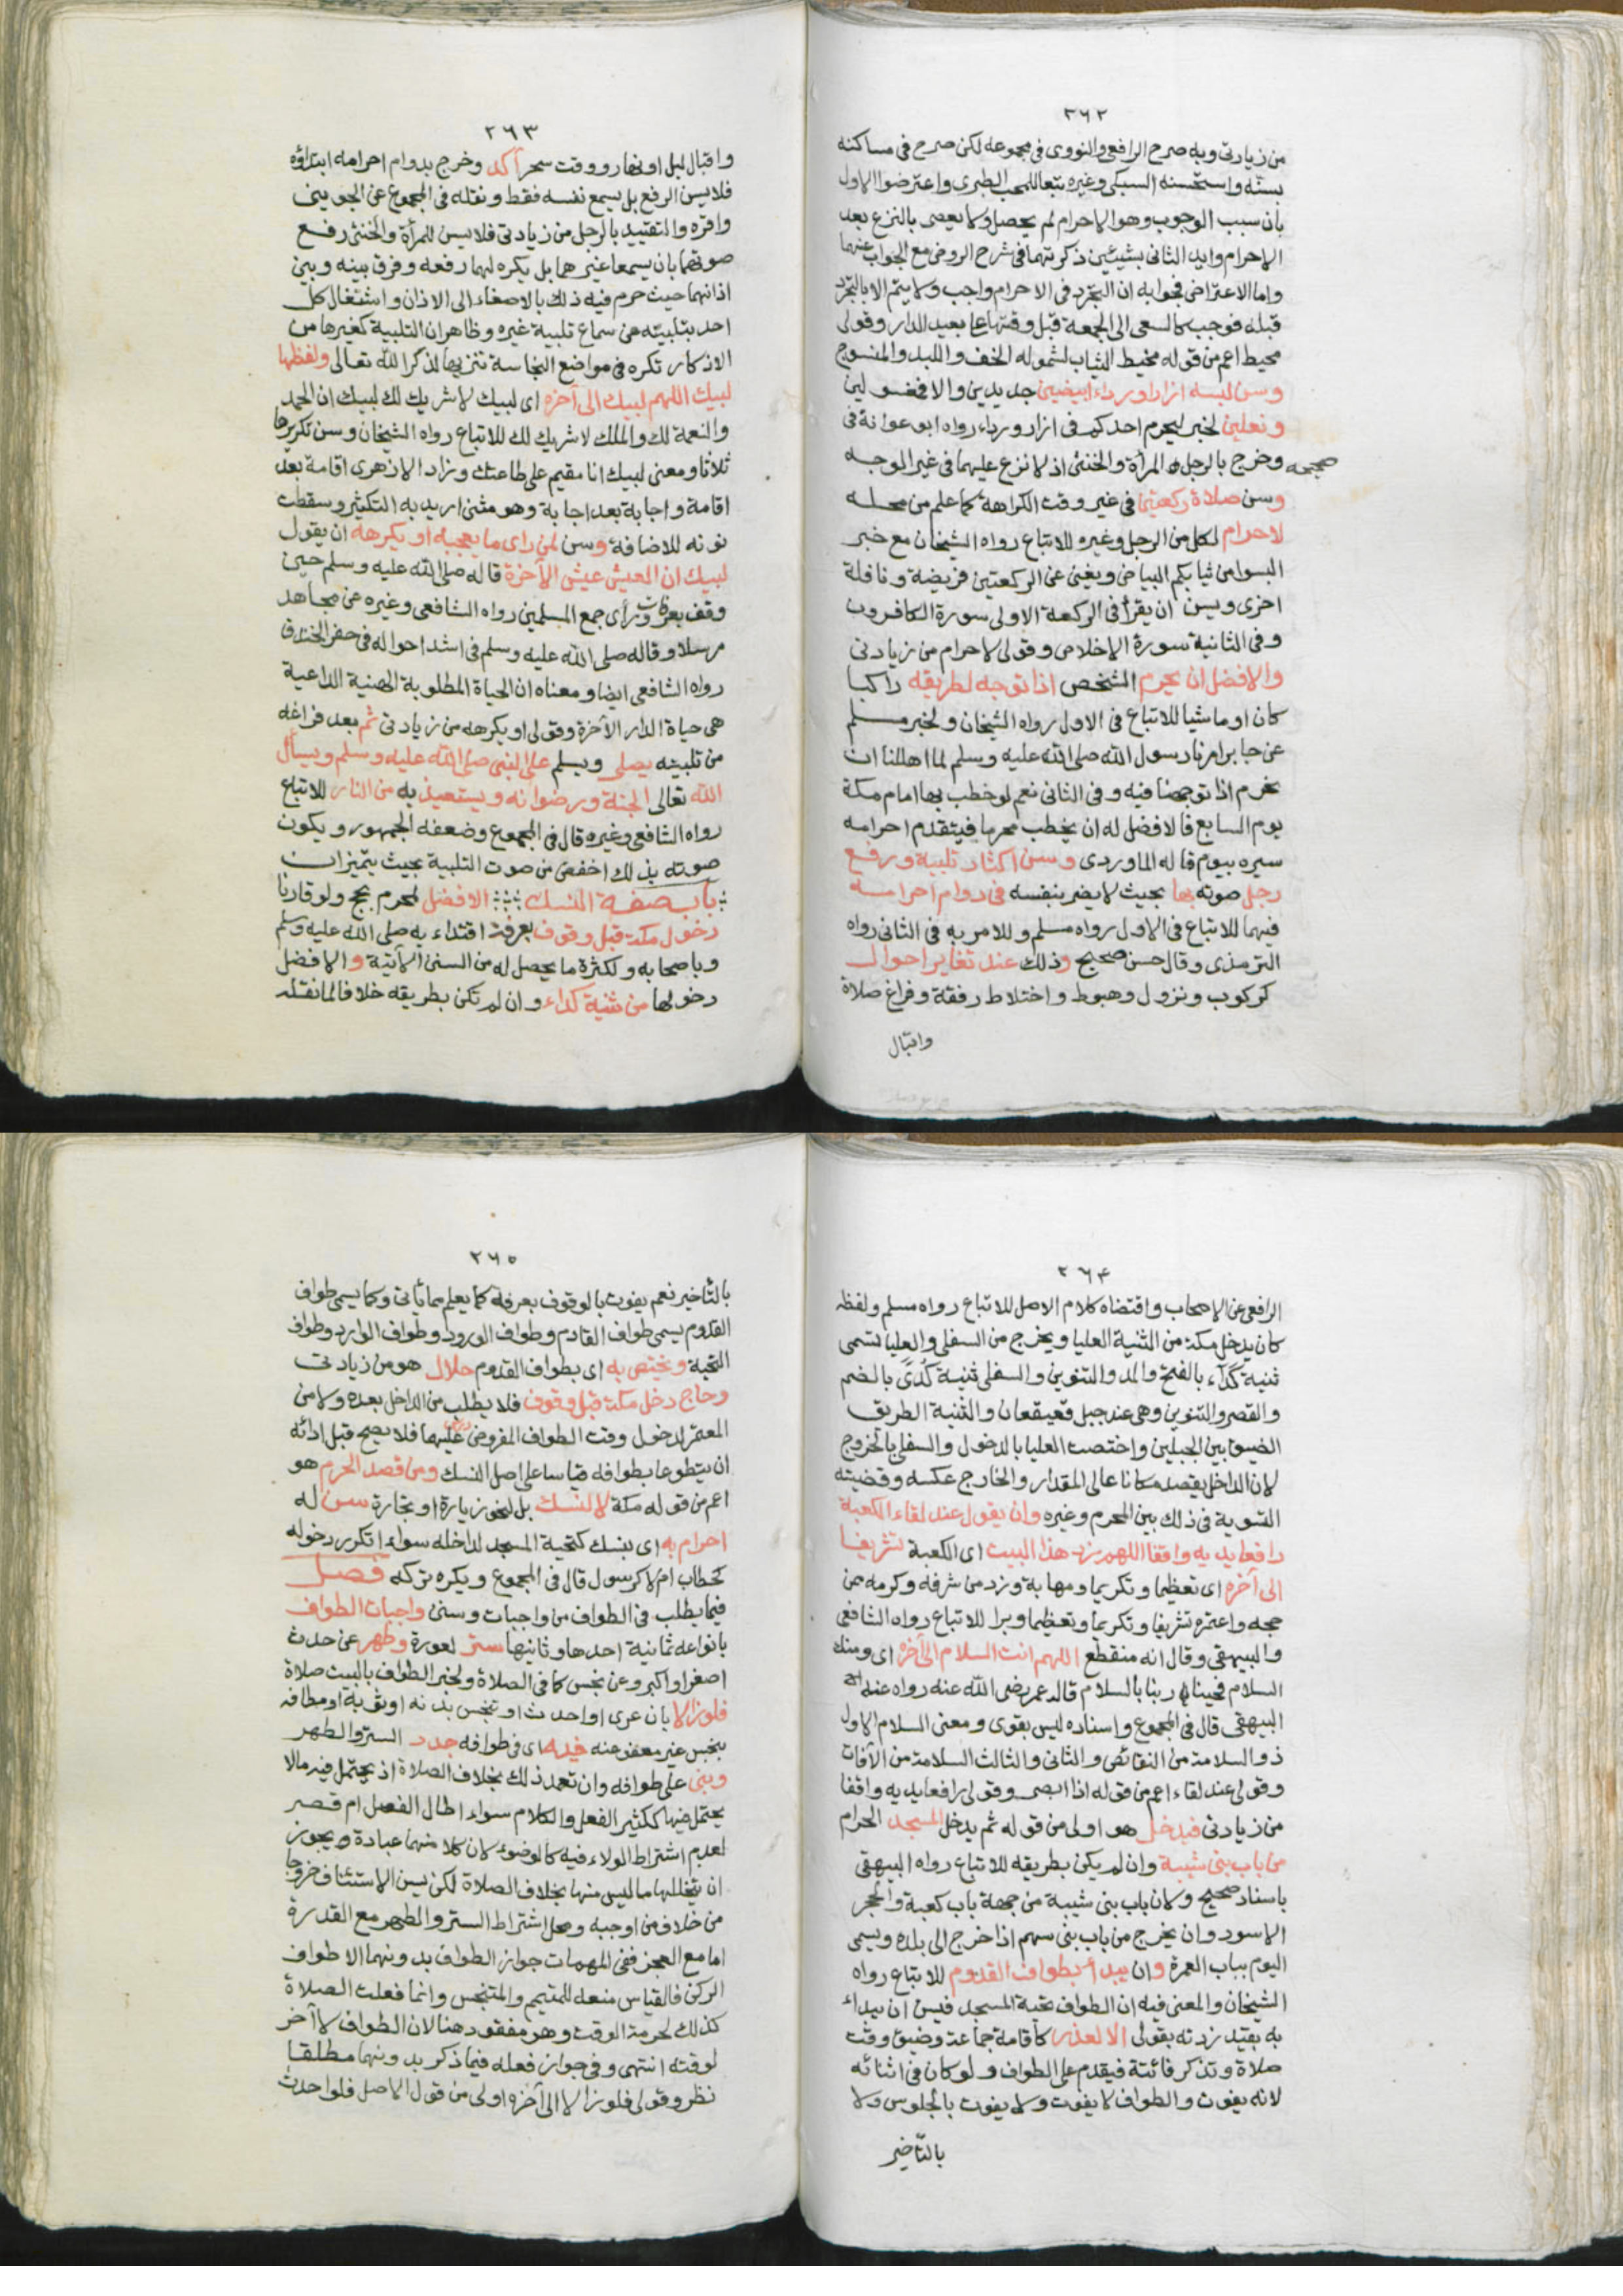 ٢٦٢
من زيادتي وبه صرح الرافعي والنووي في مجموعه لكن صرح في مناسكه
بسنه واستحسنه السبكي وغيره تبعا للمحب الطبري واعترضوا الاول
بان سبب الوجوب وهو الاحرام لم يحصل ولا يعصى بالنزع بعد
الاحرام وايد الثاني بشيئين ذكرتهما في شرح الروض مع الجواب عنهما
واما الاعتراض فجوابه ان التجرد في الاحرام واجب ولا يتم الا بالتجرد
قبله فوجب كالسعي الى الجمعة قبل وقتها على بعيد الدار وقولي
محيط اعم من قوله مخيط الثياب لشموله الخف واللبد والمنسوج
وسن لبسه ازارا ورداء ابيضين جديدين والا فمغسولين
ونعلين لخبر ليحرم احدكم في ازار ورداء رواه ابو عوانة في
صحيحه
وخرج بالرجل المرأة والخنثى اذ لا نزع عليهما في غير الوجه
وسن صلاة ركعتين في غير وقت الكراهة كما علم من محله
لاحرام لكل من الرجل وغيره للاتباع رواه الشيخان مع خبر
البسوا من ثيابكم البياض ويغني عن الركعتين فريضة ونافلة
اخرى ويسن ان يقرأ في الركعة الاولى سورة الكافرون
وفي الثانية سورة الاخلاص وقولي لاحرام من زيادتي
والافضل ان يحرم الشخص اذا توجه لطريقه راكبا
كان او ماشيا للاتباع في الاول رواه الشيخان ولخبر مسلم
عن جابر امرنا رسول الله صلى الله عليه وسلم لما اهللنا ان
نحرم اذا توجهنا فيه وفي الثاني نعم لو خطب بها امام مكة
يوم السابع فالافضل له ان يخطب محرما فيتقدم احرامه
سيره بيوم قاله الماوردي وسن اكثار تلبية ورفع
رجل صوته بها بحيث لا يضر بنفسه في دوام احرامه
فيهما للاتباع في الاول رواه مسلم وللامر به في الثاني رواه
الترمذي وقال حسن صحيح وذلك عند تغاير احوال
كركوب ونزول وهبوط واختلاط رفقة وفراغ صلاة
واقبال
٢٦٣
واقبال ليل او نهار ووقت سحر آكد وخرج بدوام احرامه ابتداؤه
فلا يسن الرفع بل يسمع نفسه فقط ونقله في المجموع عن الجويني
واقره والتقييد بالرجل من زيادتي فلا يسن للمرأة والخنثى رفع
صوتهما بان يسمعا غيرهما بل يكره لهما رفعه وفرق بينه وبين
اذانهما حيث حرم فيه ذلك بالاصغاء الى الاذان واشتغال كل
احد بتلبيته عن سماع تلبية غيره وظاهر ان التلبية كغيرها من
الاذكار تكره في مواضع النجاسة تنزيها لذكر الله تعالى ولفظها
لبيك اللهم لبيك الى آخره اي لبيك لا شريك لك لبيك ان الحمد
والنعمة لك والملك لا شريك لك للاتباع رواه الشيخان وسن تكريرها
ثلاثا ومعنى لبيك انا مقيم على طاعتك وزاد الازهري اقامة بعد
اقامة واجابة بعد اجابة وهو مثنى اريد به التكثير وسقطت
نونه للاضافة وسن لمن راى ما يعجبه او يكرهه ان يقول
لبيك ان العيش عيش الآخرة قاله صلى الله عليه وسلم حين
وقف بعرفات وراى جمع المسلمين رواه الشافعي وغيره عن مجاهد
مرسلا وقاله صلى الله عليه وسلم في اشد احواله في حفر الخندق
رواه الشافعي ايضا ومعناه ان الحياة المطلوبة الهنية الداعية
هي حياة الدار الآخرة وقولي او يكرهه من زيادتي ثم بعد فراغه
من تلبيته يصلي ويسلم على النبي صلى الله عليه وسلم ويسأل
الله تعالى الجنة ورضوانه ويستعيذ به من النار للاتباع
رواه الشافعي وغيره قال في المجموع وضعفه الجمهور ويكون
صوته بذلك اخفض من صوت التلبية بحيث يتميزان
باب صفة النسك الافضل لمحرم بحج ولو قارنا
دخول مكة قبل وقوف بعرفة اقتداء به صلى الله عليه وسلم
وباصحابه ولكثرة ما يحصل له من السنن الآتية والافضل
دخولها من ثنية كداء وان لم تكن بطريقه خلافا لما نقله
٢٦٤
الرافعي عن الاصحاب واقتضاه كلام الاصل للاتباع رواه مسلم ولفظه
كان يدخل مكة من الثنية العليا ويخرج من السفلى والعليا تسمى
ثنية كَدَآء بالفتح والمد والتنوين والسفلى ثنية كُدًى بالضم
والقصر والتنوين وهي عند جبل قعيقعان والثنية الطريق
الضيق بين الجبلين واختصت العليا بالدخول والسفلى بالخروج
لان الداخل يقصد مكانا عالي المقدار والخارج عكسه وقضيته
التسوية في ذلك بين المحرم وغيره وان يقول عند لقاء الكعبة
رافعا يديه واقفا اللهم زد هذا البيت اي الكعبة تشريفا
الى آخره اي تعظيما وتكريما ومهابة وزد من شرفه وكرمه ممن
حجه واعتمره تشريفا وتكريما وتعظيما وبرا للاتباع رواه الشافعي
والبيهقي وقال انه منقطع اللهم انت السلام الى آخره اي ومنك
السلام فحينا ربنا بالسلام قاله عمر رضي الله عنه رواه عنه
البيهقي قال في المجموع واسناده ليس بقوي ومعنى السلام الاول
ذو السلامة من النقائص والثاني والثالث السلامة من الآفات
وقولي عند لقاء اعم من قوله اذا ابصر وقولي رافعا يديه واقفا
من زيادتي فيدخل هو اولى من قوله ثم يدخل المسجد الحرام
من باب بني شيبة وان لم يكن بطريقه للاتباع رواه البيهقي
باسناد صحيح ولان باب بني شيبة من جهة باب كعبة والحجر
الاسود وان يخرج من باب بني سهم اذا خرج الى بلده ويسمى
اليوم بباب العمرة وان يبدأ بطواف القدوم للاتباع رواه
الشيخان والمعنى فيه ان الطواف تحية المسجد فيسن ان يبداء
به بقيد زدته بقولي الا لعذر كاقامة جماعة وضيق وقت
صلاة وتذكر فائتة فيقدم على الطواف ولو كان في اثنائه
لانه يفوت والطواف لا يفوت ولا يفوت بالجلوس ولا
بالتأخير
٢٦٥
بالتأخير نعم يفوت بالوقوف بعرفة كما يعلم مما يأتي وكما يسمى طواف
القدوم يسمى طواف القادم وطواف الورود وطواف الوارد وطواف
التحية ويختص به اي بطواف القدوم حلال هو من زيادتي
وحاج دخل مكة قبل وقوف فلا يطلب من الداخل بعده ولا من
المعتمر لدخول وقت الطواف المفروض عليهما فلا يصح قبل ادائه
ان يتطوعا بطوافه قياسا على اصل النسك ومن قصد الحرم هو
اعم من قوله مكة لا لنسك بل لنحو زيارة او تجارة سن له
احرام به اي بنسك كتحية المسجد لداخله سواء اتكرر دخوله
كحطاب ام لا كرسول قال في المجموع ويكره تركه فصل
فيما يطلب في الطواف من واجبات وسنن واجبات الطواف
بانواعه ثمانية احدها وثانيها ستر لعورة وطهر عن حدث
اصغر او اكبر وعن نجس كما في الصلاة ولخبر الطواف بالبيت صلاة
فلو زالا بان عرى او احدث او تنجس بدنه او ثوبه او مطافه
بنجس غير معفو عنه فيه اي في طوافه جدد الستر والطهر
وبنى على طوافه وان تعمد ذلك بخلاف الصلاة اذ يحتمل فيه ما لا
يحتمل فيها ككثير الفعل والكلام سواء اطال الفصل ام قصر
لعدم اشتراط الولاء فيه كالوضوء لان كلا منهما عبادة ويجوز
ان يتخللها ما ليس منها بخلاف الصلاة لكن يسن الاستئناف خروجا
من خلاف من اوجبه ومحل اشتراط الستر والطهر مع القدرة
اما مع العجز ففي المهمات جواز الطواف بدونهما الا طواف
الركن فالقياس منعه للمتيمم والمتنجس وانما فعلت الصلاة
كذلك لحرمة الوقت وهو مفقود هنا لان الطواف لا آخر
لوقته انتهى وفي جواز فعله فيما ذكر بدونهما مطلقا
نظر وقولي فلو زالا الى آخره اولى من قول الاصل فلو احدث